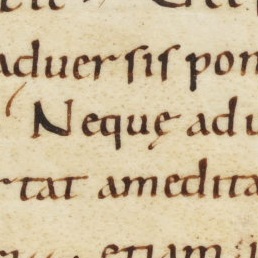 aduersis pon
Nequę adu
rtat amedita
etiam